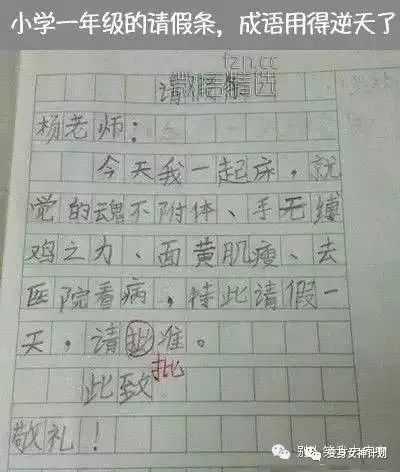 小学一年级的请假条，成语用得逆天了
fzn.cc
微语精选
杨老师：
今天我一起床，就
觉的魂不附体、手无缚
鸡之力、面黄肌瘦、去
医院看病，特此请假一
天，请批准。
批
此致
敬礼！
变身女神计划